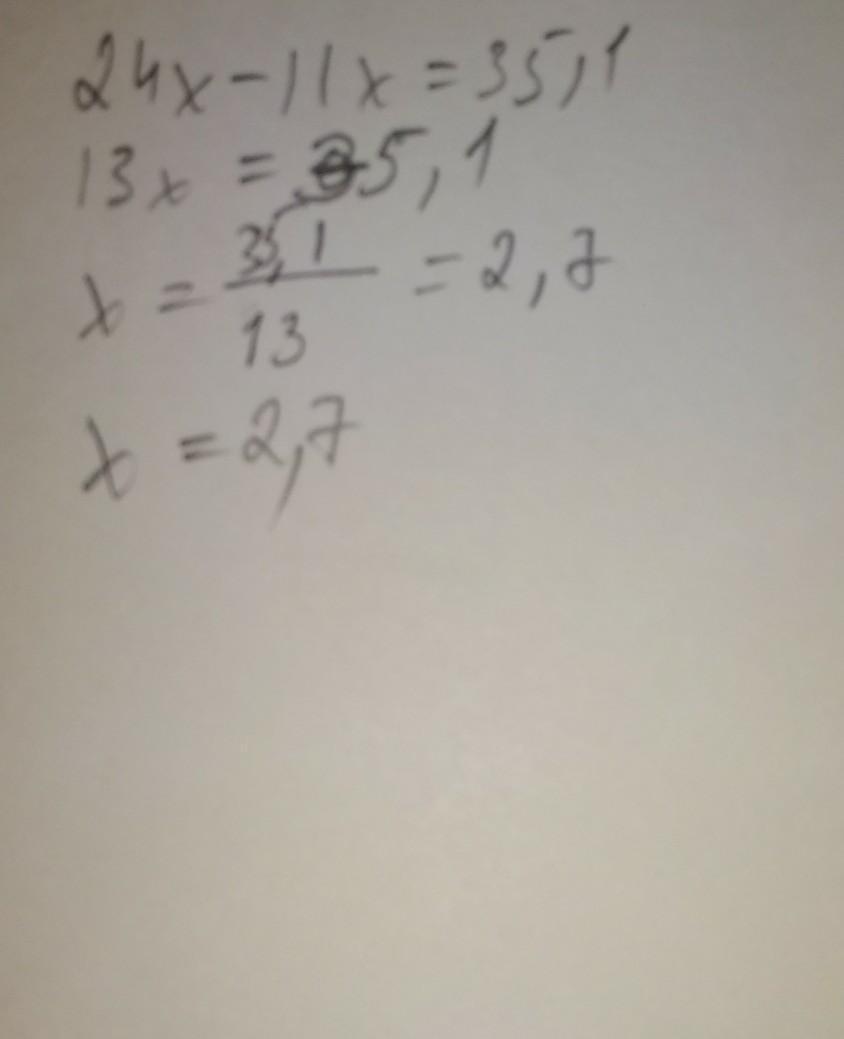 24x-11x=35,1
13x=35,1
x=35,1/13=2,7
x=2,7